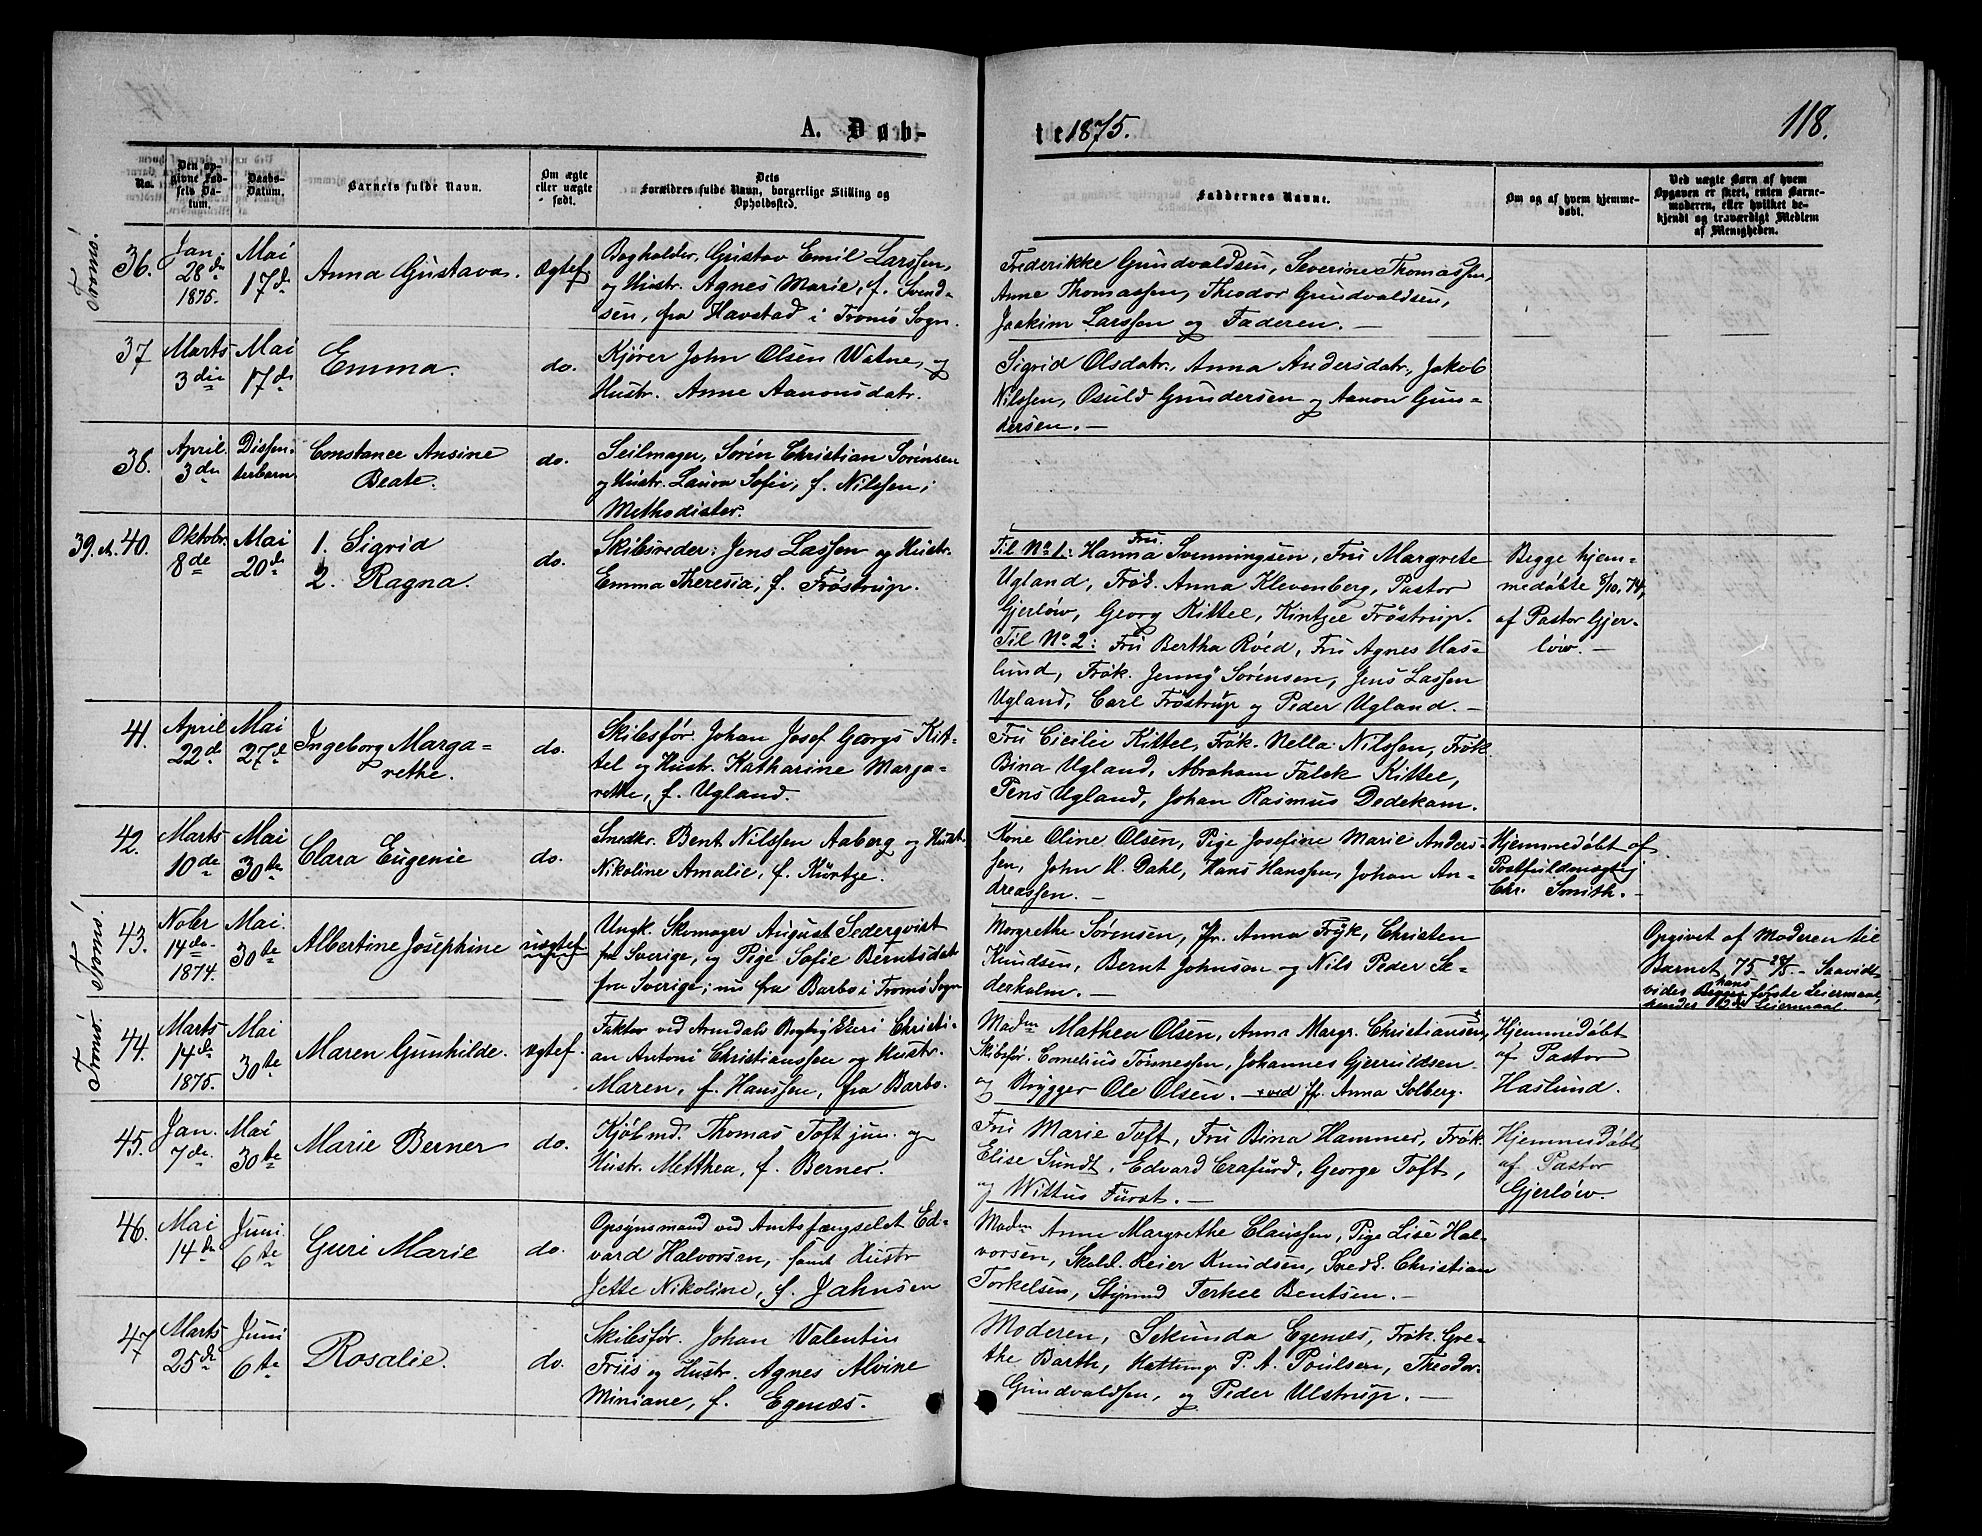 118.
A. Døb-
te 1875.
No.
Den op-
givne Fød-
sels Da-
tum.
Daabs-
Datum.
Barnets fulde Navn.
Om ægte
eller uægte
født.
Dets
Forældres fulde Navn, borgerlige Stilling og
Opholdssted.
Faddernes Navne.
Om og af hvem hjemme-
døbt.
Ved uægte Børn af hvem
Opgaven er skeet, enten Barne-
moderen, eller hvilket be-
kjendt og troværdigt Medlem
af Menigheden.
Tromö!
36.
Jan.
28de
1875.
Mai
17de
Anna Gustava.
Ægtef.
Bogholder, Gustav Emil Larssen,
og Hustr. Agnes Marie, f. Svend-
sen, fra Havstad i Tromö Sogn.
Frederikke Gundvaldsen, Severine Thomassen,
Anne Thomassen, Theodor Gundvaldsen,
Joakim Larssen og Faderen. —
37
Marts
3die
Mai
17de
Emma.
do.
Kjører John Olsen Watne, og
Hustr. Anne Aanonsdatr.
Sigrid Olsdatr., Anna Andersdatr, Jakob
Nilssen, Osuld Gundersen og Aanon Gun-
dersen. —
38.
April.
3die
Dissen-
terbarn
Constance Ansine
Beate.
do.
Seilmager, Sørén Christian Sørensen
og Hustr. Laura Sofie, f. Nilssen;
Methodister.
39. & 40.
Oktobr.
8de
Mai
20de
1. Sigrid
2. Ragna.
do.
Skibsreder: Jens Lassen og Hustr.
Emma Theresia, f. Fröstrup.
Til No 1: Fru Hanna Svenningsen, Fru Margrete
Ugland, Frøk. Anna Klevenberg, Pastor
Gjerlöw, Georg Kittel, Kintzee Fröstrup.
Til No 2: Fru Bertha Röed, Fru Agnes Has-
lund, Frøk. Jenny Sørensen, Jens Lassen
Ugland, Carl Fröstrup og Peder Ugland. —
Begge hjem-
medøbte 8/10, 74,
af Pastor Gjer-
löw. —
41.
April
22de
Mai
27de
Ingeborg Marga-
rethe.
do.
Skibsför. Johan Josef Georgs Kit-
tel og Hustr. Katharine Marga-
rethe, f. Ugland.
Fru Cicilie Kittel, Frøk. Nella Nilssen, Frøk.
Bina Ugland, Abraham Falck Kittel,
Jens Ugland, Johan Rasmus Dedekam.
42.
Marts
10de
Mai
30te
Clara Eugenie
do.
Snedkr. Bent Nilssen Aaberg og Hustr.
Nikoline Amalie, f. Kürtze.
Kone Oline Olsen, Pige Josefine Marie Anders-
sen, John H. Dahl, Hans Hanssen, Johan An-
dreassen. —
Hjemmedøbt af
Postfuldmægtig
Chr. Smith. —
Tromö!
43.
Nobr
14de
1874.
Mai.
30te
Albertine Josephine
uægtef.
Ungk. Skomager August Sederqvist
fra Sverige, og Pige Sofie Berntsdatr
fra Sverige; nu fra Barbo i Tromö Sogn
Margrethe Sørensen, Jfr. Anna Fryk, Christen
Knudsen, Bernt Johnson og Nils Peder Se-
derholm. —
Opgivet af Moderen til
Barnet, 75 28/5. — Saavidt
vides hans første Leiermaal,
hendes 2det Leiermaal.
Tromö!
44.
Marts
14de
1875.
Mai
30te
Maren Gunhilde.
ægtef.
Faktor ved Arendals Bogtrykkeri Christi-
an Antoni Christianssen og Hustr.
Maren, f. Hanssen, fra Barbo.
Madm Mathea Olsen, Anna Margr. Christiansen,
Skibsfør. Cornelius Tönnessen, Johannes Gjeruldsen
og Brygger Ole Olsen. — ved Jfr. Anna Solberg.
Hjemmedöbt
af Pastor
Haslund.
45.
Jan.
7de
Mai
30te
Marie Berner
do.
Kjøbmd. Thomas Toft jun. og
Hustr. Metthea, f. Berner.
Fru Marie Toft, Fru Bina Hammer, Frøk.
Elise Sundt, Edvard Crafurd, George Toft,
og Wittus Fürst. —
Hjemmedøbt
af Pastor
Gjerlöw.
46.
Mai
14de
Juni
6te
Guri Marie
do.
Opsynsmand ved Amtsfængselet Ed-
vard Halvorsen, samt Hustr
Jette Nikoline, f. Jahnsen
Madm Anne Margrethe Claussen, Pige Lise Hal-
vorsen, Skold. Reier Knudsen, Snedk. Christian
Torkelsen, Styrmd Terkel Bentsen. —
47
Marts
25de
Juni
6te
Rosalie.
do.
Skibsför. Johan Valentin
Friis og Hustr. Agnes Alvine
Miniane, f. Egenæs.
Moderen, Sekunda Egenæs, Frøk. Gre-
the Barth, Kattung. P. A. Poulsen, Theodor
Gundvaldsen, og Peder Ulstrup. —